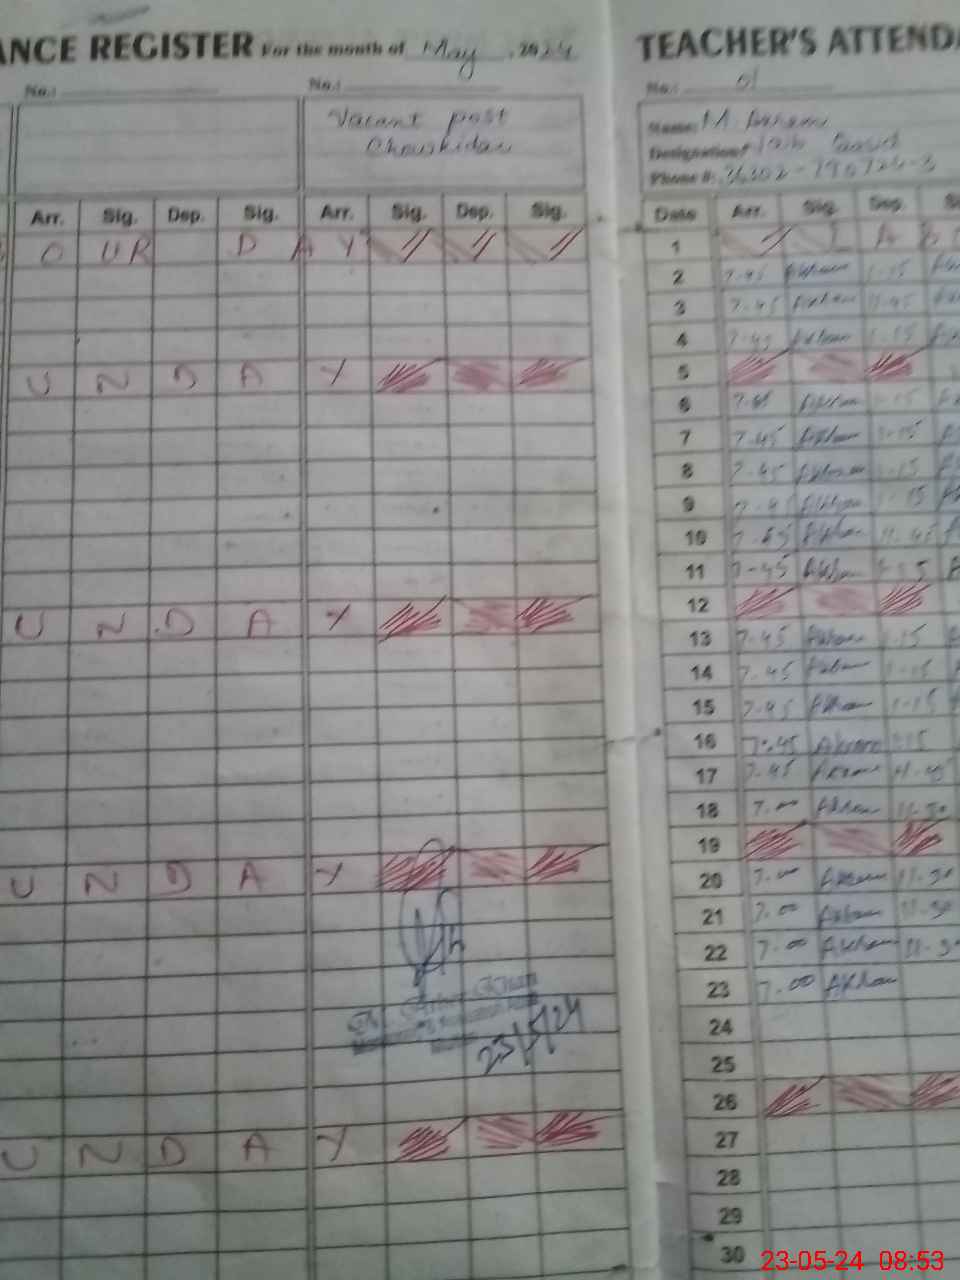 ANCE REGISTER For the month of May, 2024
No.:
No.:
Vacant post
Chowkidar
Arr. Sig. Dep. Sig. Arr. Sig. Dep. Sig.
O UR D A Y
U N D A Y
U N D A Y
U N D A Y
U N D A Y
23/5/24
TEACHER'S ATTENDA
No.: 01
Name: M.
Designation:
Phone #:
Date Arr. Sig. Dep. S
1 L A B
2 7.45 Akham 1.15
3 7.45 Akham 11.45
4 7.45 Akham 1.15
5
6 7.45 Akham 1.15
7 7.45 Akham 1.15
8 7.45 Akham 1.15
9 7.45 Akham 1.15
10 7.45 Akham 11.45
11 7-45 Akham 1.15
12
13 7.45 Akham 1.15
14 7.45 Akham 1.15
15 7.45 Akham 1.15
16 7.45 Akham 1.15
17 7.45 Akham 11.45
18 7.00 Akham 11.30
19
20 7.00 Akham 11.30
21 7.00 Akham 11.30
22 7.00 Akham 11.30
23 7.00 Akham
24
25
26
27
28
29
30
23-05-24 08:53